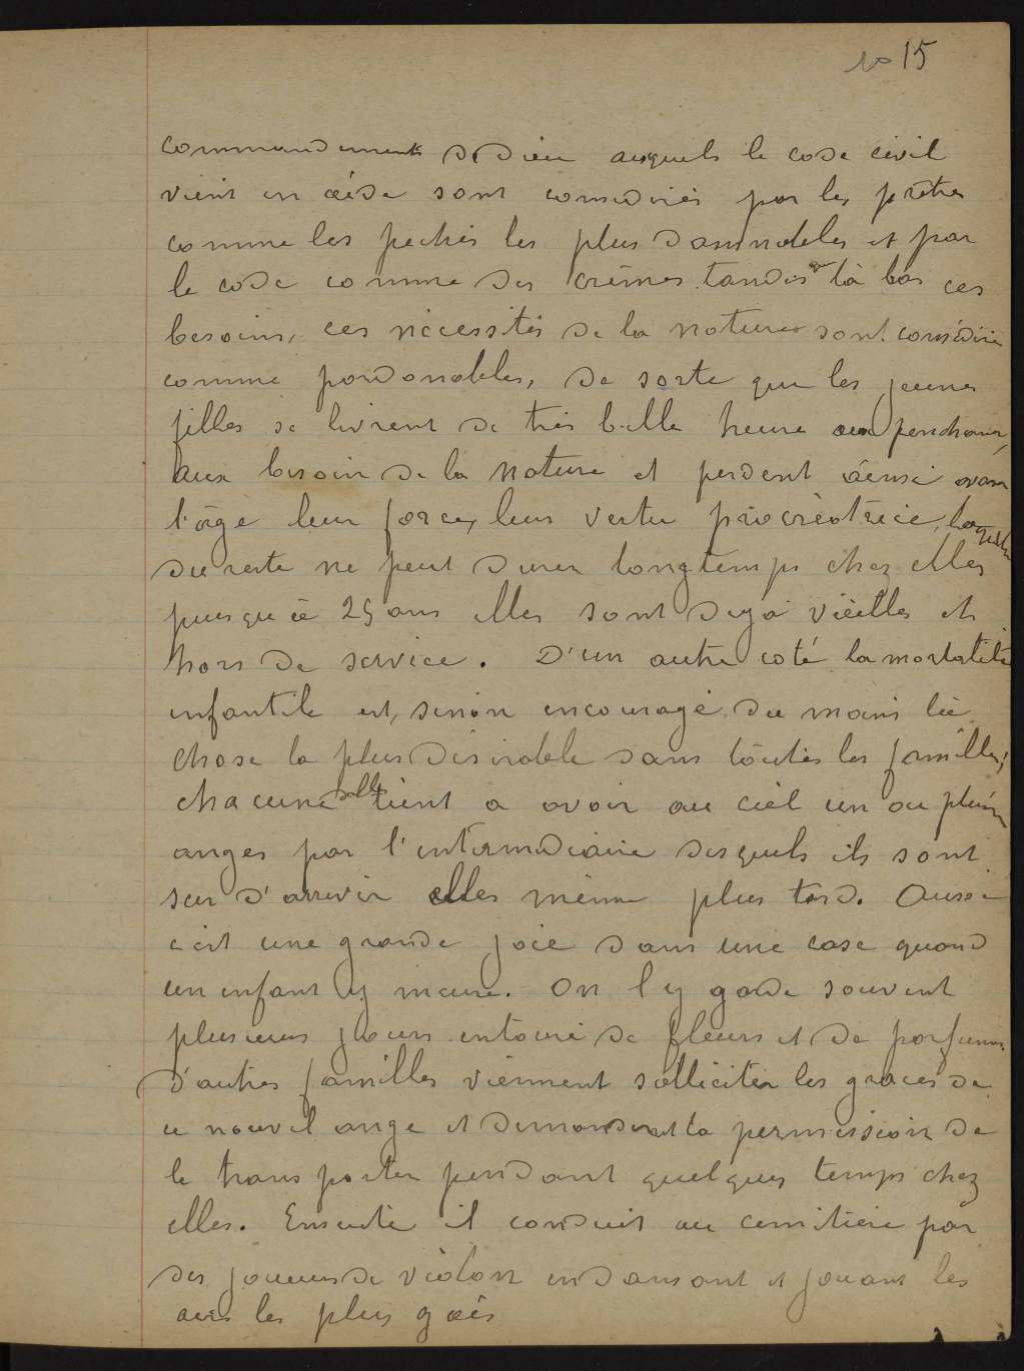 No 15
commandements de Dieu auquels le code civil
vient en aide sont considérés par les prêtres
comme les pechés les plus damnables et par
le code comme des crimes tandis que là bas ces
besoins, ces nécessités de la nature sont considérés
comme pardonables, de sorte que les jeunes
filles se livrent de très belle heure aux penchants,
aux besoin de la nature et perdent ainsi avant
l'âge leur force, leur vertu procréatrice, laquelle
du reste ne peut durer longtemps chez elles
puisqu'à 25 ans elles sont deja vieilles et
hors de service. D'un autre coté la mortalité
infantile est, sinon encouragé du moins la
chose la plus désirable dans toutes les familles;
chacune d'elle tient a avoir au ciel un ou plusieurs
anges par l'intermédiaire desquels ils sont
sur d'arriver elles même plus tard. Aussi
c'est une grande joie dans une case quand
un enfant y meure. On l'y garde souvent
plusieurs jours entouré de fleurs et de parfums
d'autres familles viennent solliciter les graces de
ce nouvel ange et demandent la permission de
le transporter pendant quelques temps chez
elles. Ensuite il conduit au cimitière par
des joueurs de violon en dansant et jouant les
airs les plus gais